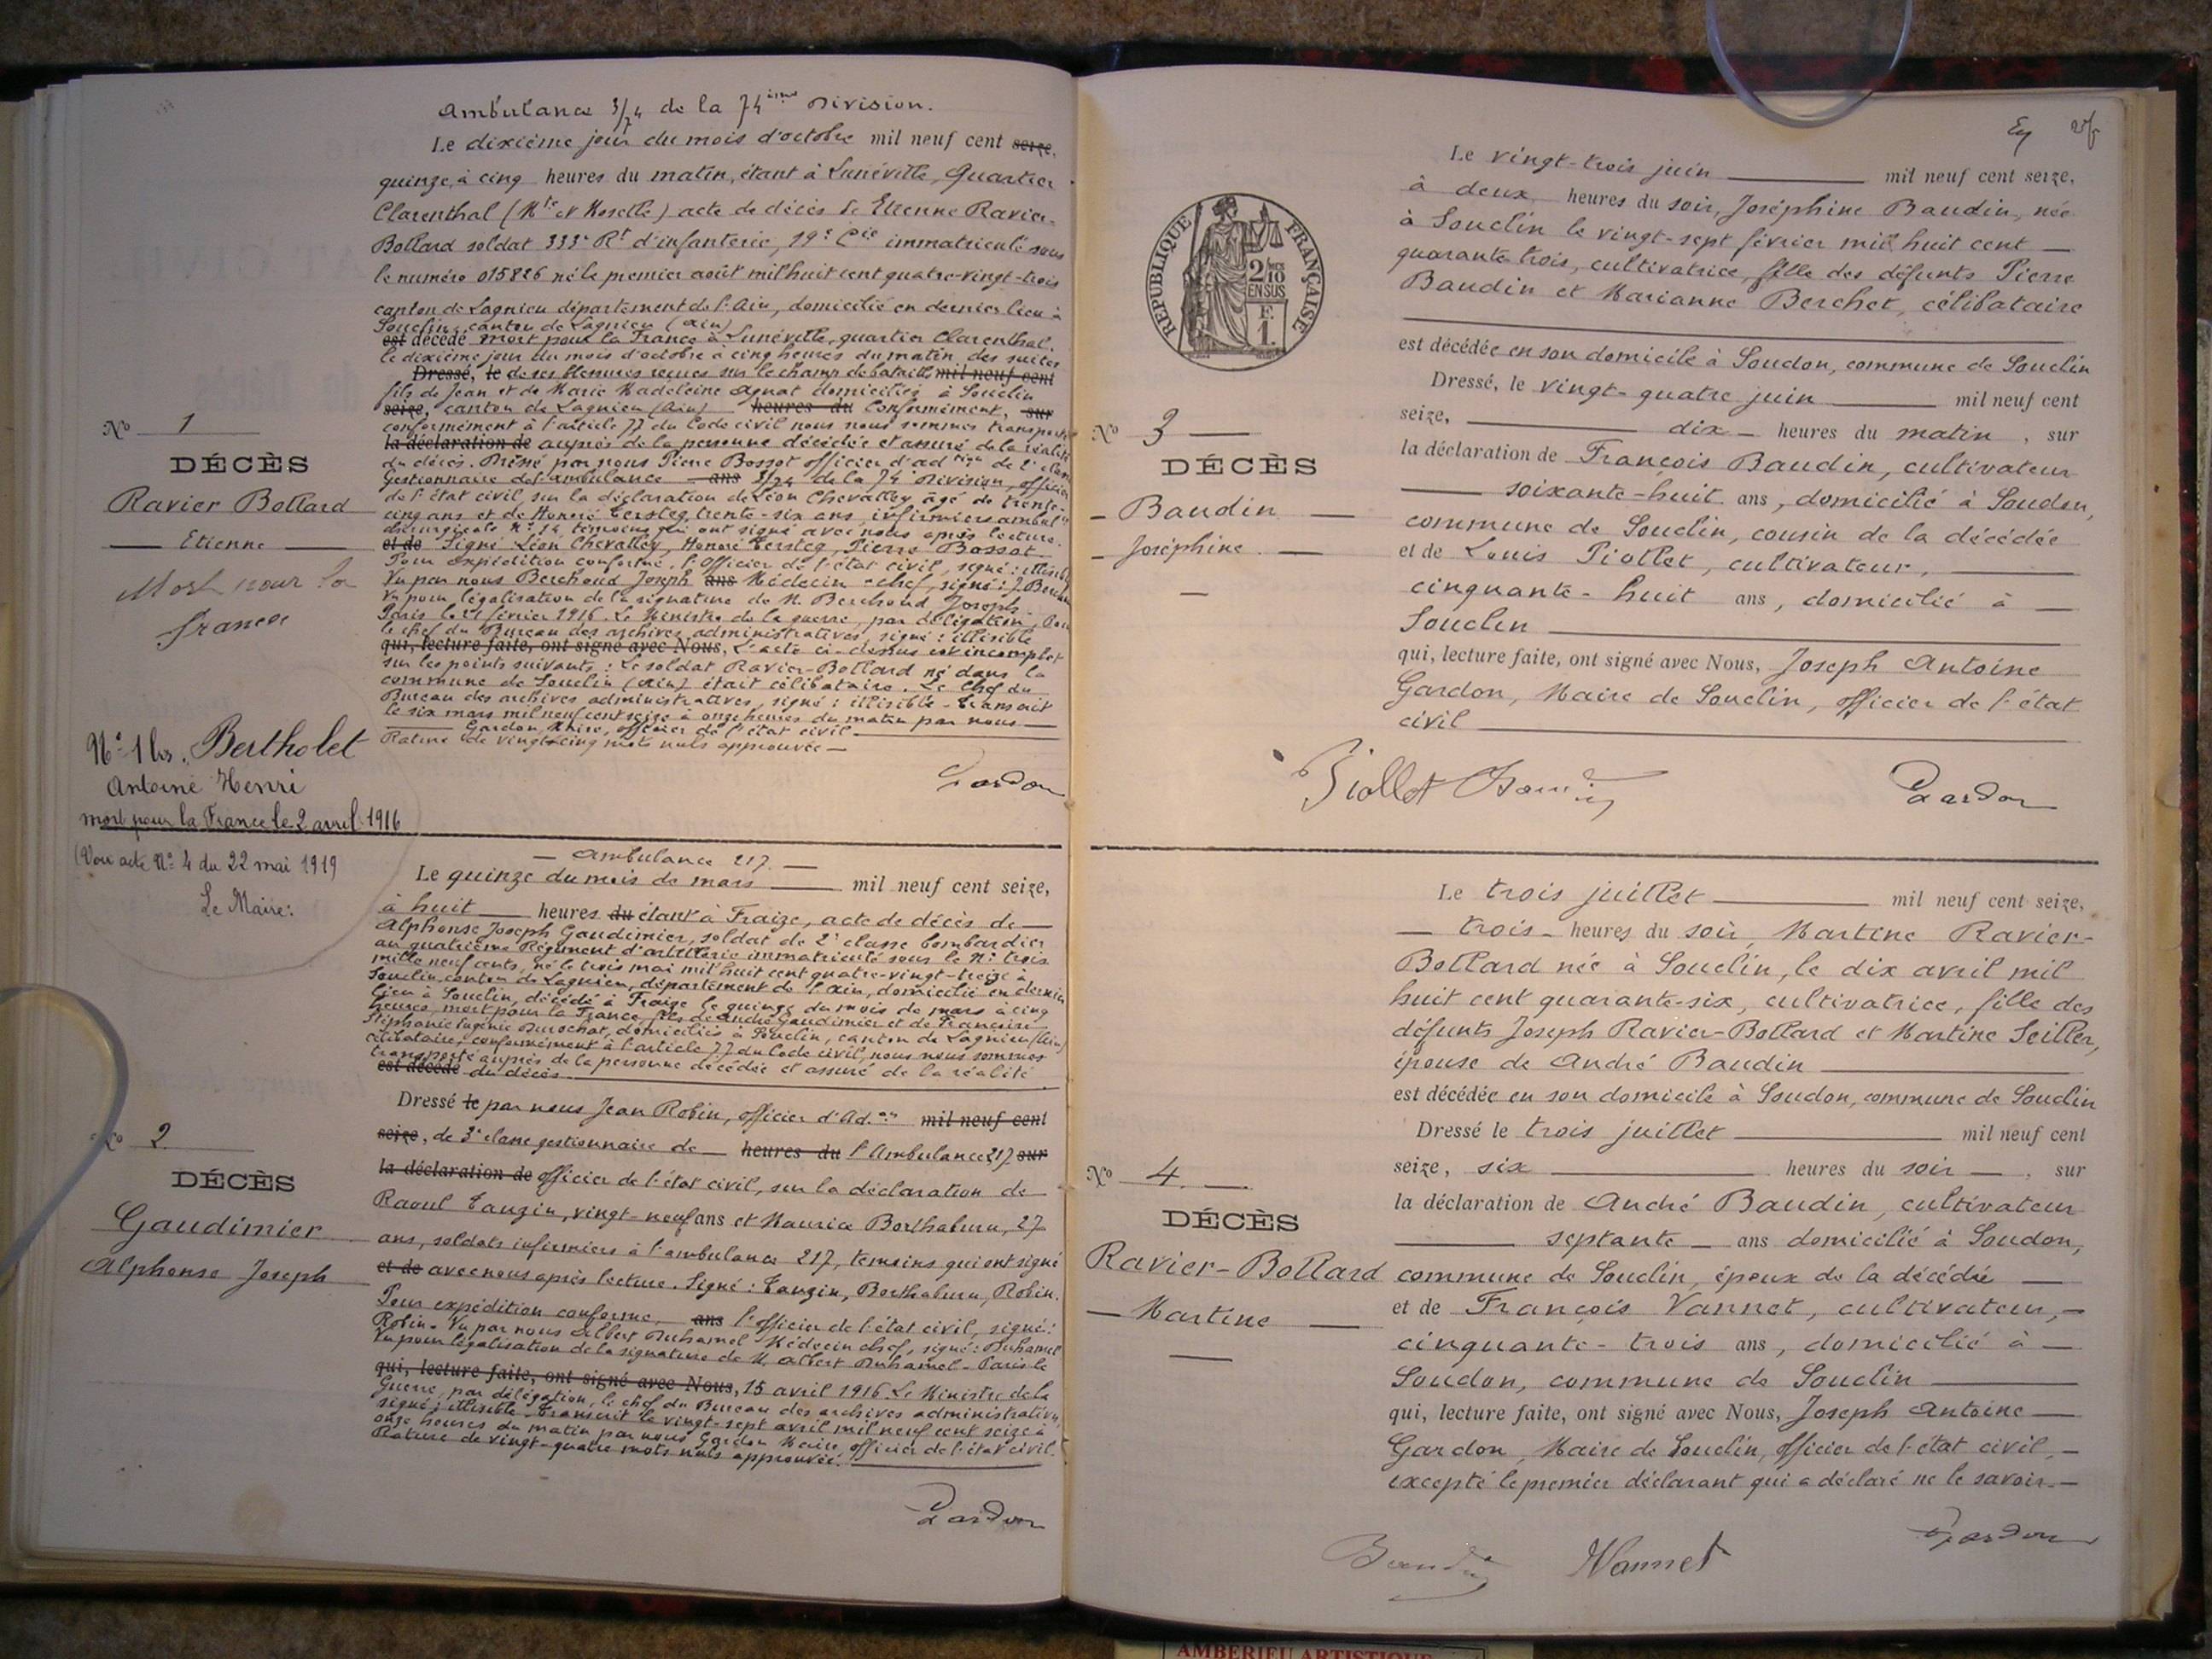 Ambulance 3/74 de la 74ème Division.
Le dixième jour du mois d'octobre mil neuf cent seize,
quinze, à cinq heures du matin, étant à Lunéville, Quartier
Clarenthal (Mthe et Moselle) acte de décès de Etienne Ravier-
Bollard soldat 333e Rt d'infanterie, 19e Cie immatriculé sous
le numéro 015826 né le premier août mil huit cent quatre-vingt-trois
canton de Lagnieu département de l'Ain, domicilié en dernier lieu à
Souclin, canton de Lagnieu (Ain)
est décédé mort pour la France à Lunéville, quartier Clarenthal.
le dixième jour du mois d'octobre à cinq heures du matin, des suites
Dressé, le de ses blessures reçues sur le champ de bataille mil neuf cent
fils de Jean et de Marie Madeleine Agnat domiciliés à Souclin
seize, canton de Lagnieu (Ain) heures du Conformément, sur
conformément à l'article 77 du Code civil nous nous sommes transporté
la déclaration de auprès de la personne décédée et assuré de la réalité
du décès. Dressé par nous Pierre Bossot officier d'ad de 2e classe
Gestionnaire de l'ambulance ans 3/74 de la 74 Division, officier
de l'état civil, sur la déclaration de Léon Chevalley, âgé de trente-
cinq ans et de Honoré Tersteg, trente-six ans, infirmiers ambulce
chirurgicale N° 14 témoins qui ont signé avec nous après lecture.
et de Signé Léon Chevalley, Honoré Tersteg, Pierre Bossot
Pour expédition conforme, l'Officier de l'état civil, signé : illisible
Vu par nous Berchoud Joseph ans Médecin-chef, signé : J. Berchoud
Vu pour légalisation de la signature de M. Berchoud Joseph.
Paris le 21 février 1916. Le Ministre de la guerre, par délégation, Pour
le chef du Bureau des archives administratives, signé : illisible
qui, lecture faite, ont signé avec Nous, L'acte ci-dessus est incomplet
sur les points suivants : Le soldat Ravier-Bollard né dans la
commune de Souclin (Ain) était célibataire. Le Chef du
Bureau des archives administratives, signé : illisible - Transcrit
le six mars mil neuf cent seize à onze heures du matin par nous
Gardon, Maire, officier de l'état civil
Rature de vingt-cinq mots nuls approuvée
Gardon
No 1
DÉCÈS
Ravier Bollard
Etienne
Mort pour la
France
No 1 bis. Bertholet
Antoine Henri
mort pour la France le 2 avril 1916
(Voir acte No 4 du 22 mai 1919
Le Maire:
Ambulance 217.
Le quinze du mois de mars mil neuf cent seize,
à huit heures du étant à Fraize, acte de décès de
Alphonse Joseph Gaudimier, soldat de 2e classe bombardier
au quatrième Régiment d'artillerie immatriculé sous le No trois
mille neuf cents, né le trois mai mil huit cent quatre-vingt-treize à
Souclin, canton de Lagnieu, département de l'Ain, domicilié en dernier
lieu à Souclin, décédé à Fraize le quinze du mois de mars à cinq
heures, mort pour la France, fils de André Gaudimier et de Françoise
Stéphanie Eugénie Durochat, domiciliés à Souclin, canton de Lagnieu (Ain)
célibataire, conformément à l'article 77 du Code civil, nous nous sommes
transporté auprès de la personne décédée et assuré de la réalité
est décédé du décès.
Dressé le par nous Jean Robin, officier d'Ad.on mil neuf cent
seize, de 3e classe gestionnaire de heures du l'Ambulance 217 sur
la déclaration de officier de l'état civil, sur la déclaration de
Raoul Tauzin, vingt-neuf ans et Maurice Borthaburu, 27
ans, soldats infirmiers à l'ambulance 217, témoins qui ont signé
et de avec nous après lecture. Signé : Tauzin, Borthaburu, Robin.
Pour expédition conforme, ans l'officier de l'état civil, signé :
Robin. Vu par nous Albert Duhamel Médecin chef, signé : Duhamel
Vu pour légalisation de la signature de M. Albert Duhamel - Paris le
qui, lecture faite, ont signé avec Nous, 15 avril 1916. Le Ministre de la
Guerre, par délégation, le chef du Bureau des archives administratives
signé : illisible. Transcrit le vingt-sept avril mil neuf cent seize à
onze heures du matin par nous Gardon Maire, officier de l'état civil.
Rature de vingt-quatre mots nuls approuvée.
Gardon
No 2
DÉCÈS
Gaudimier
Alphonse Joseph
Le vingt-trois juin mil neuf cent seize,
à deux heures du soir, Joséphine Baudin, née
à Souclin le vingt-sept février mil huit cent
quarante trois, cultivatrice, fille des défunts Pierre
Baudin et Marianne Berchet, célibataire
est décédée en son domicile à Soudon, commune de Souclin
Dressé, le vingt-quatre juin mil neuf cent
seize, dix heures du matin, sur
la déclaration de François Baudin, cultivateur
soixante-huit ans, domicilié à Soudon,
commune de Souclin, cousin de la décédée
et de Louis Piollet, cultivateur,
cinquante-huit ans, domicilié à
Souclin
qui, lecture faite, ont signé avec Nous, Joseph Antoine
Gardon, Maire de Souclin, officier de l'état
civil
Piollet Baudin
Gardon
RÉPUBLIQUE FRANÇAISE
2/10
EN SUS
F.
1.
No 3
DÉCÈS
Baudin
Joséphine
Le trois juillet mil neuf cent seize,
trois heures du soir, Martine Ravier-
Bollard née à Souclin, le dix avril mil
huit cent quarante-six, cultivatrice, fille des
défunts Joseph Ravier-Bollard et Martine Seiller,
épouse de André Baudin
est décédée en son domicile à Soudon, commune de Souclin
Dressé le trois juillet mil neuf cent
seize, six heures du soir, sur
la déclaration de André Baudin, cultivateur
septante ans domicilié à Soudon,
commune de Souclin, époux de la décédée
et de François Vannet, cultivateur,
cinquante-trois ans, domicilié à
Soudon, commune de Souclin
qui, lecture faite, ont signé avec Nous, Joseph Antoine
Gardon, Maire de Souclin, officier de l'état civil,
excepté le premier déclarant qui a déclaré ne le savoir.
Baudin Vannet
Gardon
No 4.
DÉCÈS
Ravier-Bollard
Martine
AMBERIEU ARTISTIQUE